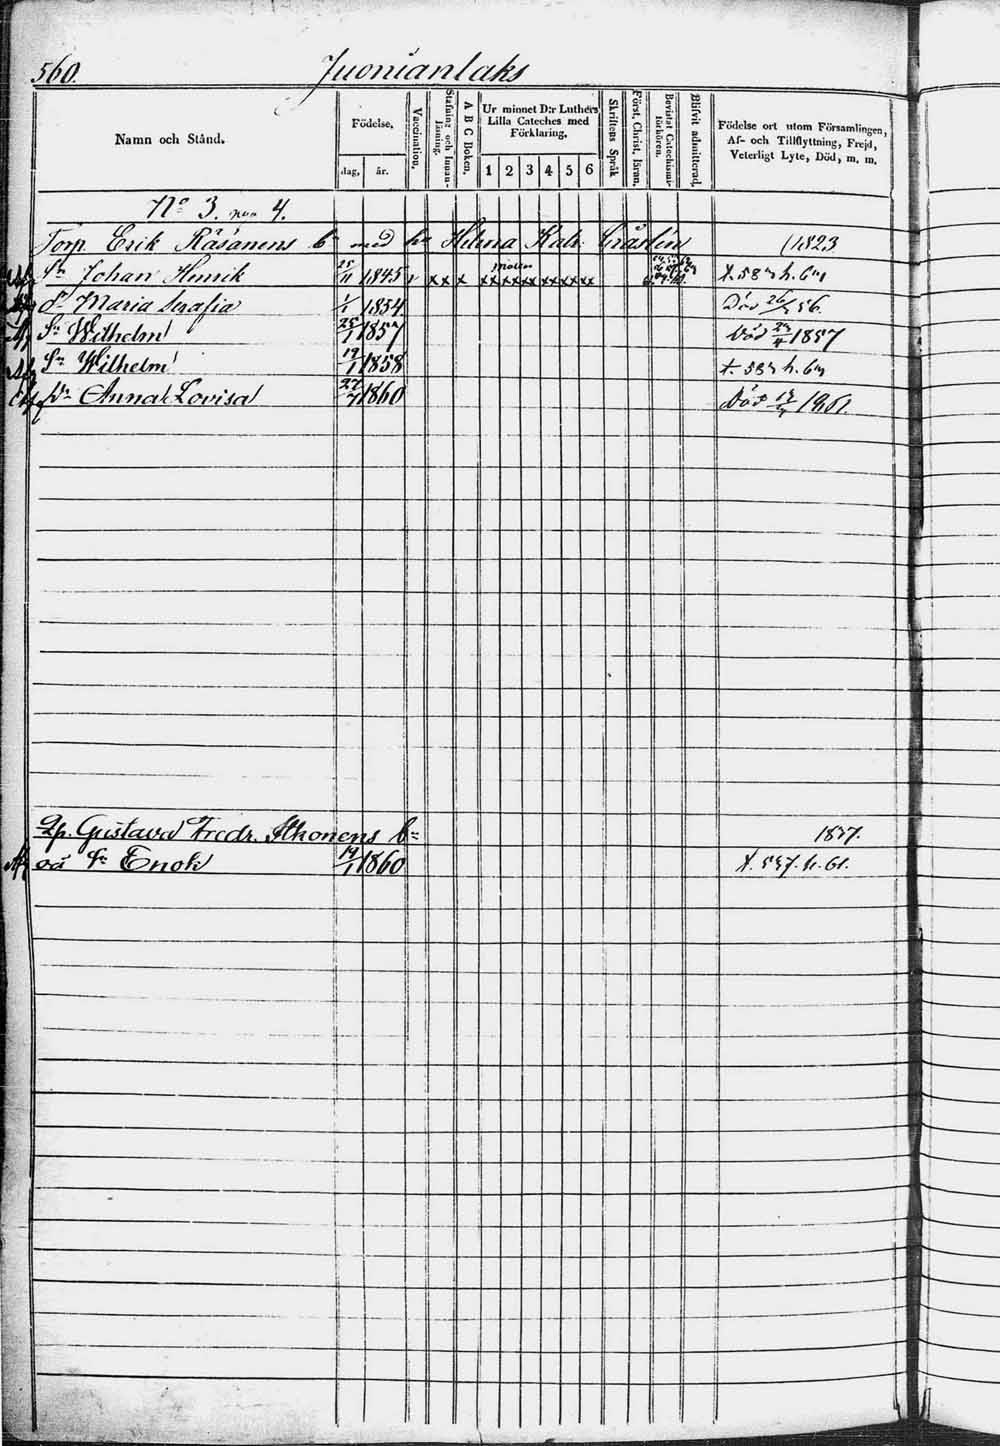 560.
Juonianlaks
Namn och Stånd.
Födelse.
dag,
år.
Vaccination.
Stafning och Innan-
läsning.
A B C Boken.
Ur minnet D:r Luthers
Lilla Cateches med
Förklaring.
1 2 3 4 5 6
Skriftens Språk
Först. Christ. läran.
Bevistat Catechismi-
förhören.
Blifvit admitterad.
Födelse ort utom Församlingen,
Af- och Tillflyttning, Frejd,
Veterligt Lyte, Död, m. m.
No 3. nya 4.
Torp. Erik Räsänens b. med h. Helena Katr. 1823
Sn Johan Henrik 25/11 1845 x x x
Dr Maria Serafia 1/1 1854 Död 26/ 56.
Sn Wilhelm 25/1 1857 Död 1857
Sn Wilhelm 19/1 1858
Dr Anna Lovisa 27/7 1860 Död
Gustava Fredr. Ihonens b. 1837.
Sn Enok 19/1 1860